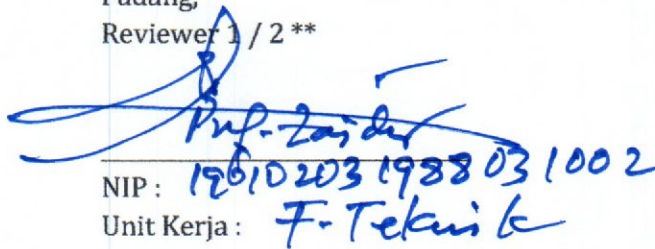 Padang,
Reviewer 1 / 2 **
Prof. Zaidir
NIP : 196102031988031002
Unit Kerja : F. Teknik